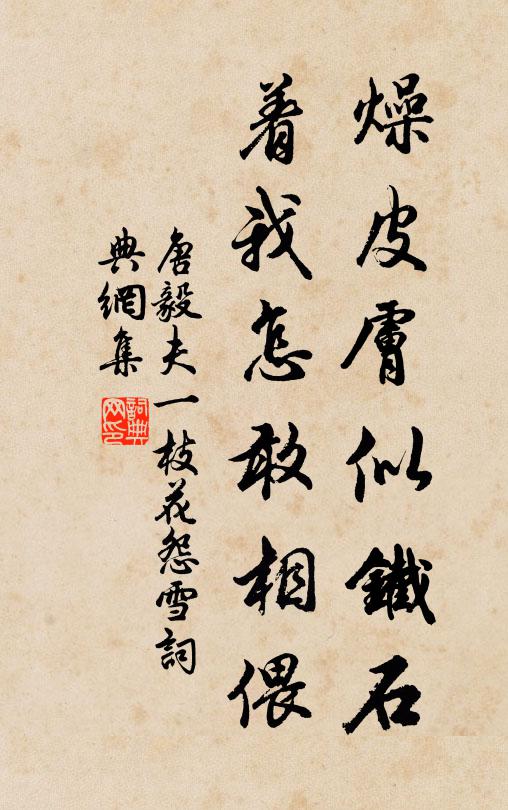 燥皮膚似鐵石
着我怎敢相偎
唐毅夫一枝花怨雪詞
典網集
詞典網印